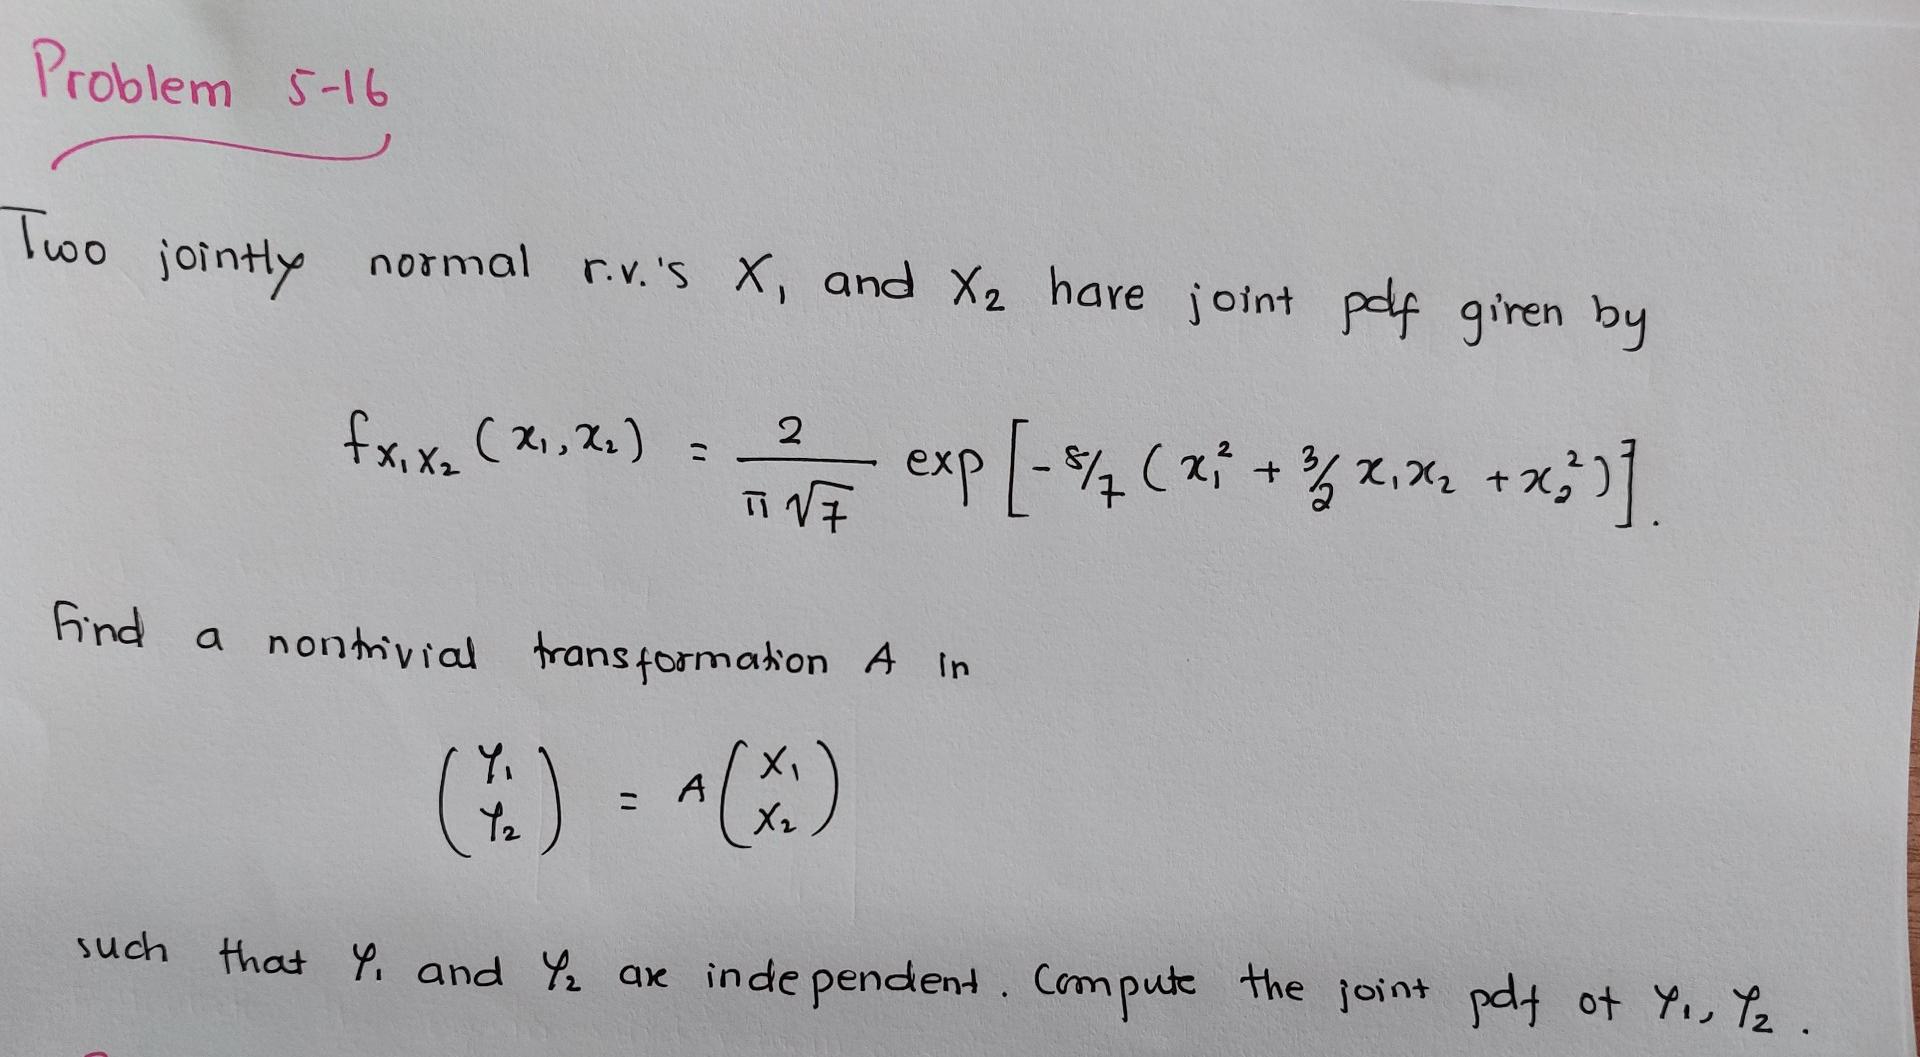 Problem 5-16
Two jointly normal r.v.'s X₁ and X₂ have joint pdf given by
f_{X₁X₂}(x₁,x₂) = 2/(π√7) exp[-8/7 (x₁² + 3/2 x₁x₂ + x₂²)].
Find a nontrivial transformation A in
(Y₁ Y₂) = A (X₁ X₂)
such that Y₁ and Y₂ are independent. Compute the joint pdf of Y₁, Y₂.